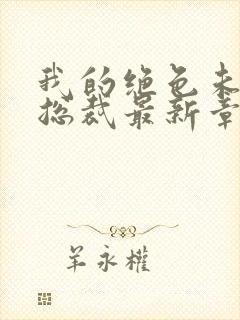 我的绝色未
总裁最新章
羊永權